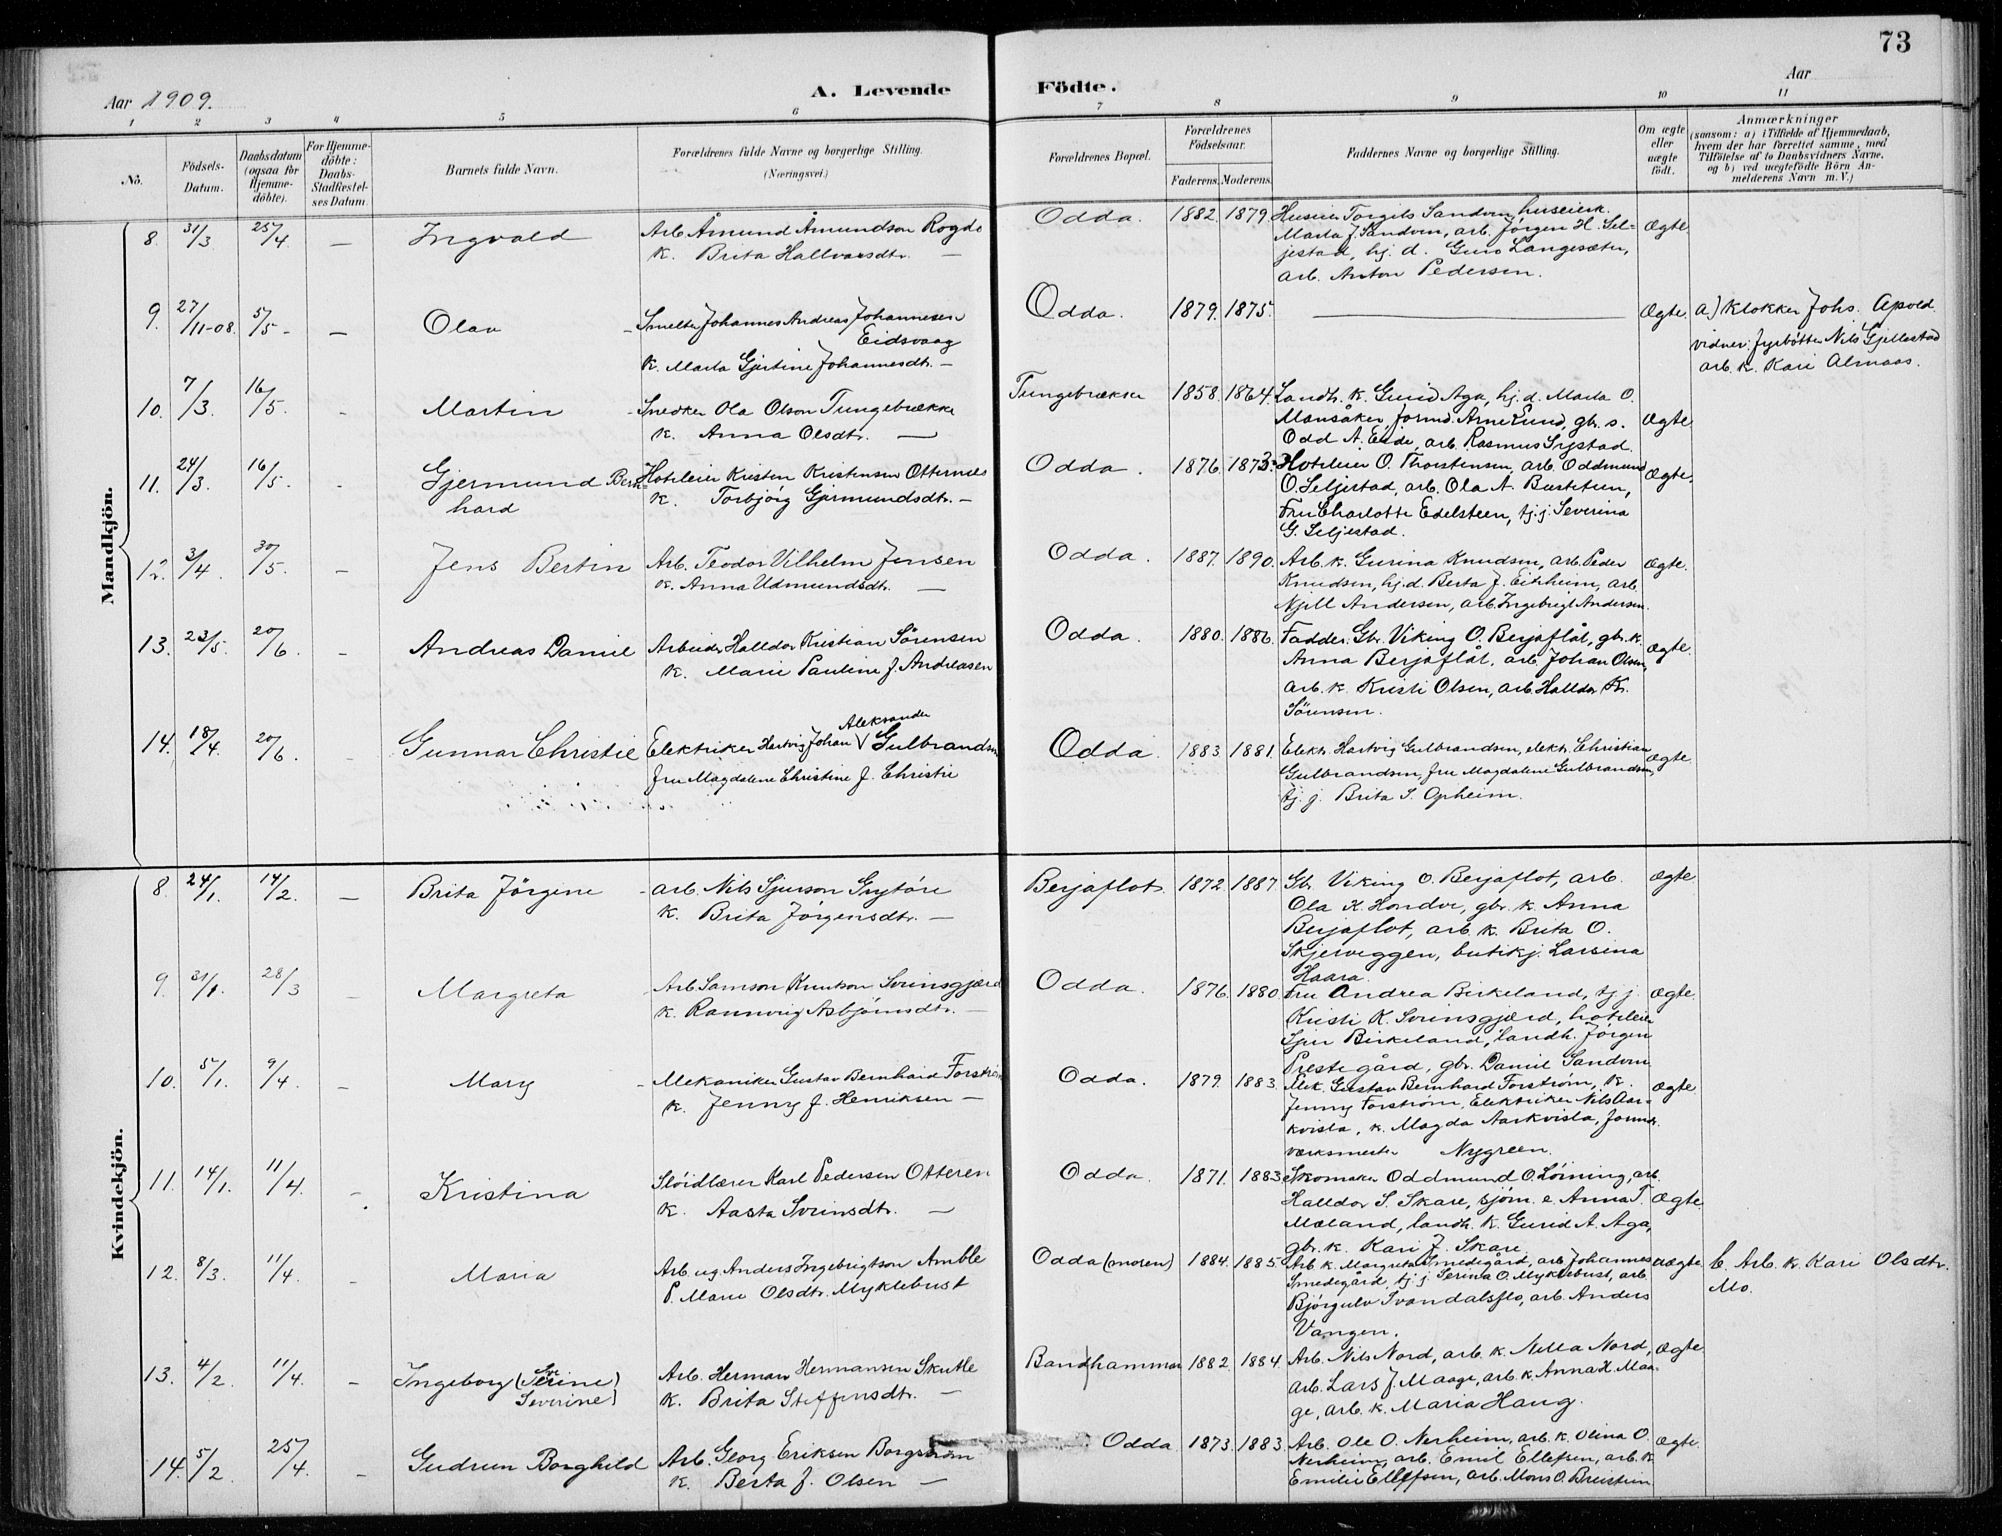 73
Aar 1909.
A. Levende Födte.
Aar
1 2 3 4 5 6 7 8 9 10 11
No.
Födsels-Datum.
Daabsdatum (ogsaa for Hjemme-döbte).
For Hjemme-döbte: Daabs-Stadfæstel-ses Datum.
Barnets fulde Navn.
Forældrenes fulde Navne og borgerlige Stilling.
(Næringsvei.)
Forældrenes Bopæl.
Forældrenes Födselsaar.
Faderens. Moderens.
Faddernes Navne og borgerlige Stilling.
Om ægte eller uægte födt.
Anmærkninger
(saasom: a) i Tilfælde af Hjemmedaab,
hvem der har forrettet samme, med
Tilföielse af to Daabsvidners Navne,
og b) ved uægtefödte Börn An-
melderens Navn m. V.)
Mandkjön.
8. 31/3 25/4 — Ingvald Arb. Åmund Åmundson Rogde Odda. 1882. 1879. Huseier Torgils Sandven, huseierk. Ægte.
k. Brita Hallvarsdtr. — Marta J. Sandven, arb. Jørgen H. Sel-
jestad, hj. d. Guro Langesæter,
arb. Anton Pedersen.
9. 27/11-08. 5/5 — Olav Smelte. Johannes Andreas Johannesen Odda. 1879. 1875. — Ægte. a) Klokker Johs. Apold
Eidsvaag vidner: fyrbøtter Nils Gjellestad
k. Marta Gjertine Johannesdtr. — arb. k. Kari Almaas.
10. 7/3. 16/5. - Martin Snedker Ola Olson Tungebrække Tungebrække 1858. 1864. Landh. k. Gurid Aga, hj. d. Marta O. Ægte
k. Anna Olsdtr. — Mansåker, formd. Arne Lund, gbr. s.
Odd A. Eide, arb. Rasmus
11. 24/3. 16/5. - Gjermund Bern- Hoteleier Kristen Kristensen Otternes Odda. 1876. 1873. Hoteleier O. Thorstensen, arb. Oddmund Ægte.
hard k. Torbjörg Gjermundsdtr. — O. Seljestad, arb. Ola A. Bustetun,
Fru Charlotte Edelsteen, tj. j. Severina
G. Seljestad.
12. 3/4. 30/5. — Jens Bertin Arb. Teodor Vilhelm Jensen Odda. 1887. 1890. Arb. k. Gurina Knudsen, arb. Peder Ægte.
k. Anna Udmundsdtr. — Knudsen, hj. d. Berta J. Eitrheim, arb.
Njell Andersen, arb. Ingebrigt Andersen.
13. 23/5. 20/6. - Andreas Daniel Arbeider Halldor Kristian Sörensen Odda. 1880. 1886. Fadder. Gbr. Viking O. Berjaflåt, gbr. k. Ægte.
k. Marie Pauline J. Andreasen Anna Berjaflåt, arb. Johan Olsen,
arb. k. Kristi Olsen, arb. Halldor K.
Sörensen.
14. 18/4. 20/6. - Gunnar Christie Elektriker Hartvig Johan Aleksander Gulbrandsen Odda. 1883. 1881. Elektr. Hartvig Gulbrandsen, elektr. Christian Ægte
fru Magdalene Christine f. Christie Gulbrandsen, fru Magdalene Gulbrandsen,
tj. j. Brita S. Opheim.
Kvindekjön.
8. 24/1. 14/2. — Brita Jörgine - arb. Nils Sjurson Grytöre Berjaflot. 1872 1887. Gbr. Viking O. Berjaflot, arb. Ægte
k. Brita Jörgensdtr. — Ola K. Hondve, gbr. k. Anna
Berjaflot, arb. k. Brita O.
Skjerveggen, butikj. Larsina
Haara.
9. 31/1. 28/3 — Margreta Arb. Samson Knutson Sveinsgjærd Odda. 1876. 1880. Fru Andrea Birkeland, tj. j. Ægte.
k. Rannveig Asbjörnsdtr. — Kristi K. Sveinsgjærd, hoteleier
Sjur Birkeland, landh. Jörgen
Prestegård, gbr. Daniel Sandven
10. 5/1. 9/4. - Mary Mekaniker Gustav Bernhard Forström Odda. 1879. 1883. Mek. Gustav Bernhard Forström, k. Ægte.
k. Jenny J. Henriksen — Jenny Forström, Elektriker Nils Aar-
kvisla, k. Magda Aarkvisla, formd.
værksmester Nygreen.
11. 14/1. 11/4. - Kristina Slöidlærer Karl Pedersen Otteren Odda. 1871. 1883. Skomaker Oddmund O. Löining, arb. Ægte.
k. Aasta Sveinsdtr. — Halldor S. Skare, sjöm. e. Anna T.
Mæland, landh. k. Gurid A. Aga,
gbr. k. Kari J. Skare.
12. 8/3. 11/4. - Maria Arb. ug. Anders Ingebrigtson Amble Odda (moren) 1884. 1885. Arb. k. Margreta Smedegård, arb. Johannes uægte. b. Arb. k. Kari Olsdtr.
P. Mari Olsdtr. Myklebust Smedegård, tj. j. Serina O. Myklebust, arb. Mo.
Björgulv Svandalsflo, arb. Anders
Vangen.
13. 4/2. 11/4. - Ingeborg (Serine) Arb. Herman Hermansen Skutle Bandhammar 1882. 1884. Arb. Nils Nord, arb. k. Nella Nord, Ægte.
Severine) k. Brita Steffensdtr. — arb. Lars J. Maage, arb. k. Anna H. Maa-
ge, arb. k. Maria Haug.
14. 5/2. 25/4. - Gudrun Borghild Arb. Georg Eriksen Borgström Odda 1873. 1883. Arb. Ole O. Nerheim, arb. k. Olina O. Ægte.
k. Berta J. Olsen — Nerheim, arb. Emil Ellefsen, arb. k.
Emilie Ellefsen, arb. Mons O. Breistein